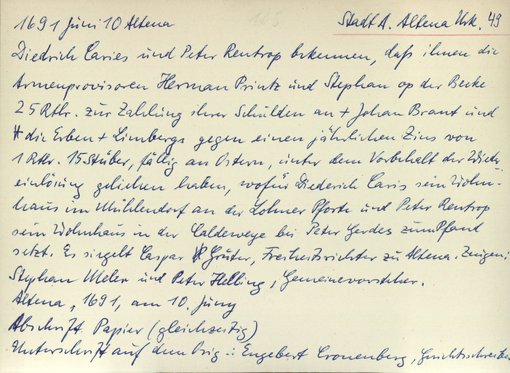 1691 Juni 10 Altena Stadt A. Altena Urk. 49
Diedrich Caries und Peter Rentrop bekennen, daß ihnen die
Armenprovisoren Herman Printz und Stephan op der Becke
25 Rtlr. zur Zahlung ihrer Schulden an + Johan Brant und
die Erben + Limbergs gegen einen jährlichen Zins von
1 Rtlr. 15 Stüber, fällig an Ostern, unter dem Vorbehalt der Wieder-
einlösung geliehen haben, wofür Diederich Caris sein Wohn-
haus im Mühlendorf an der Lohner Pforte und Peter Rentrop
sein Wohnhaus in der Caldewege bei Peter Gerdes zum Pfand
setzt. Es siegelt Caspar Grüter, Freiheitsrichter zu Altena. Zeugen:
Stephan Meler und Peter Helling, Gemeinevorsteher.
Altena, 1691, am 10. Juny
Abschrift Papier (gleichzeitig)
Unterschrift auf dem Orig.: Engebert Cronenberg, Gerichtsschreiber